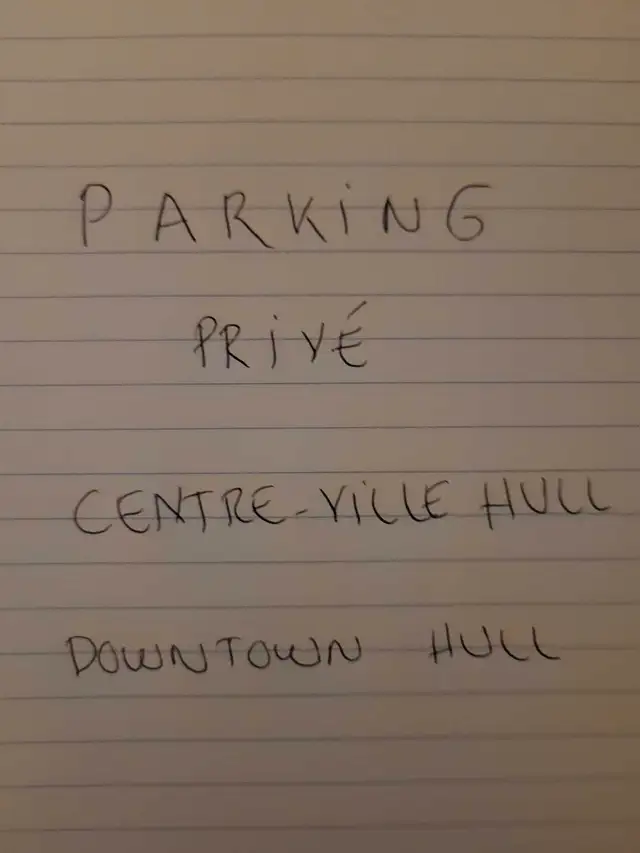 PARKING
PRIVÉ
CENTRE-VILLE HULL
DOWNTOWN HULL